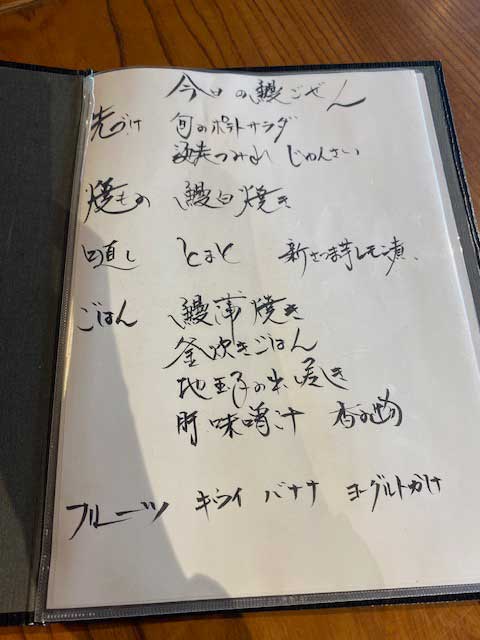 今日の鰻ごぜん
先づけ 旬のポテトサラダ
つみれ じゅんさい
焼もの 鰻白焼き
口直し とまと 新さつま芋レモン漬、
ごはん 鰻蒲焼き
釜炊きごはん
地玉子の出し巻き
肝味噌汁 香の物
フルーツ キウイ バナナ ヨーグルトかけ